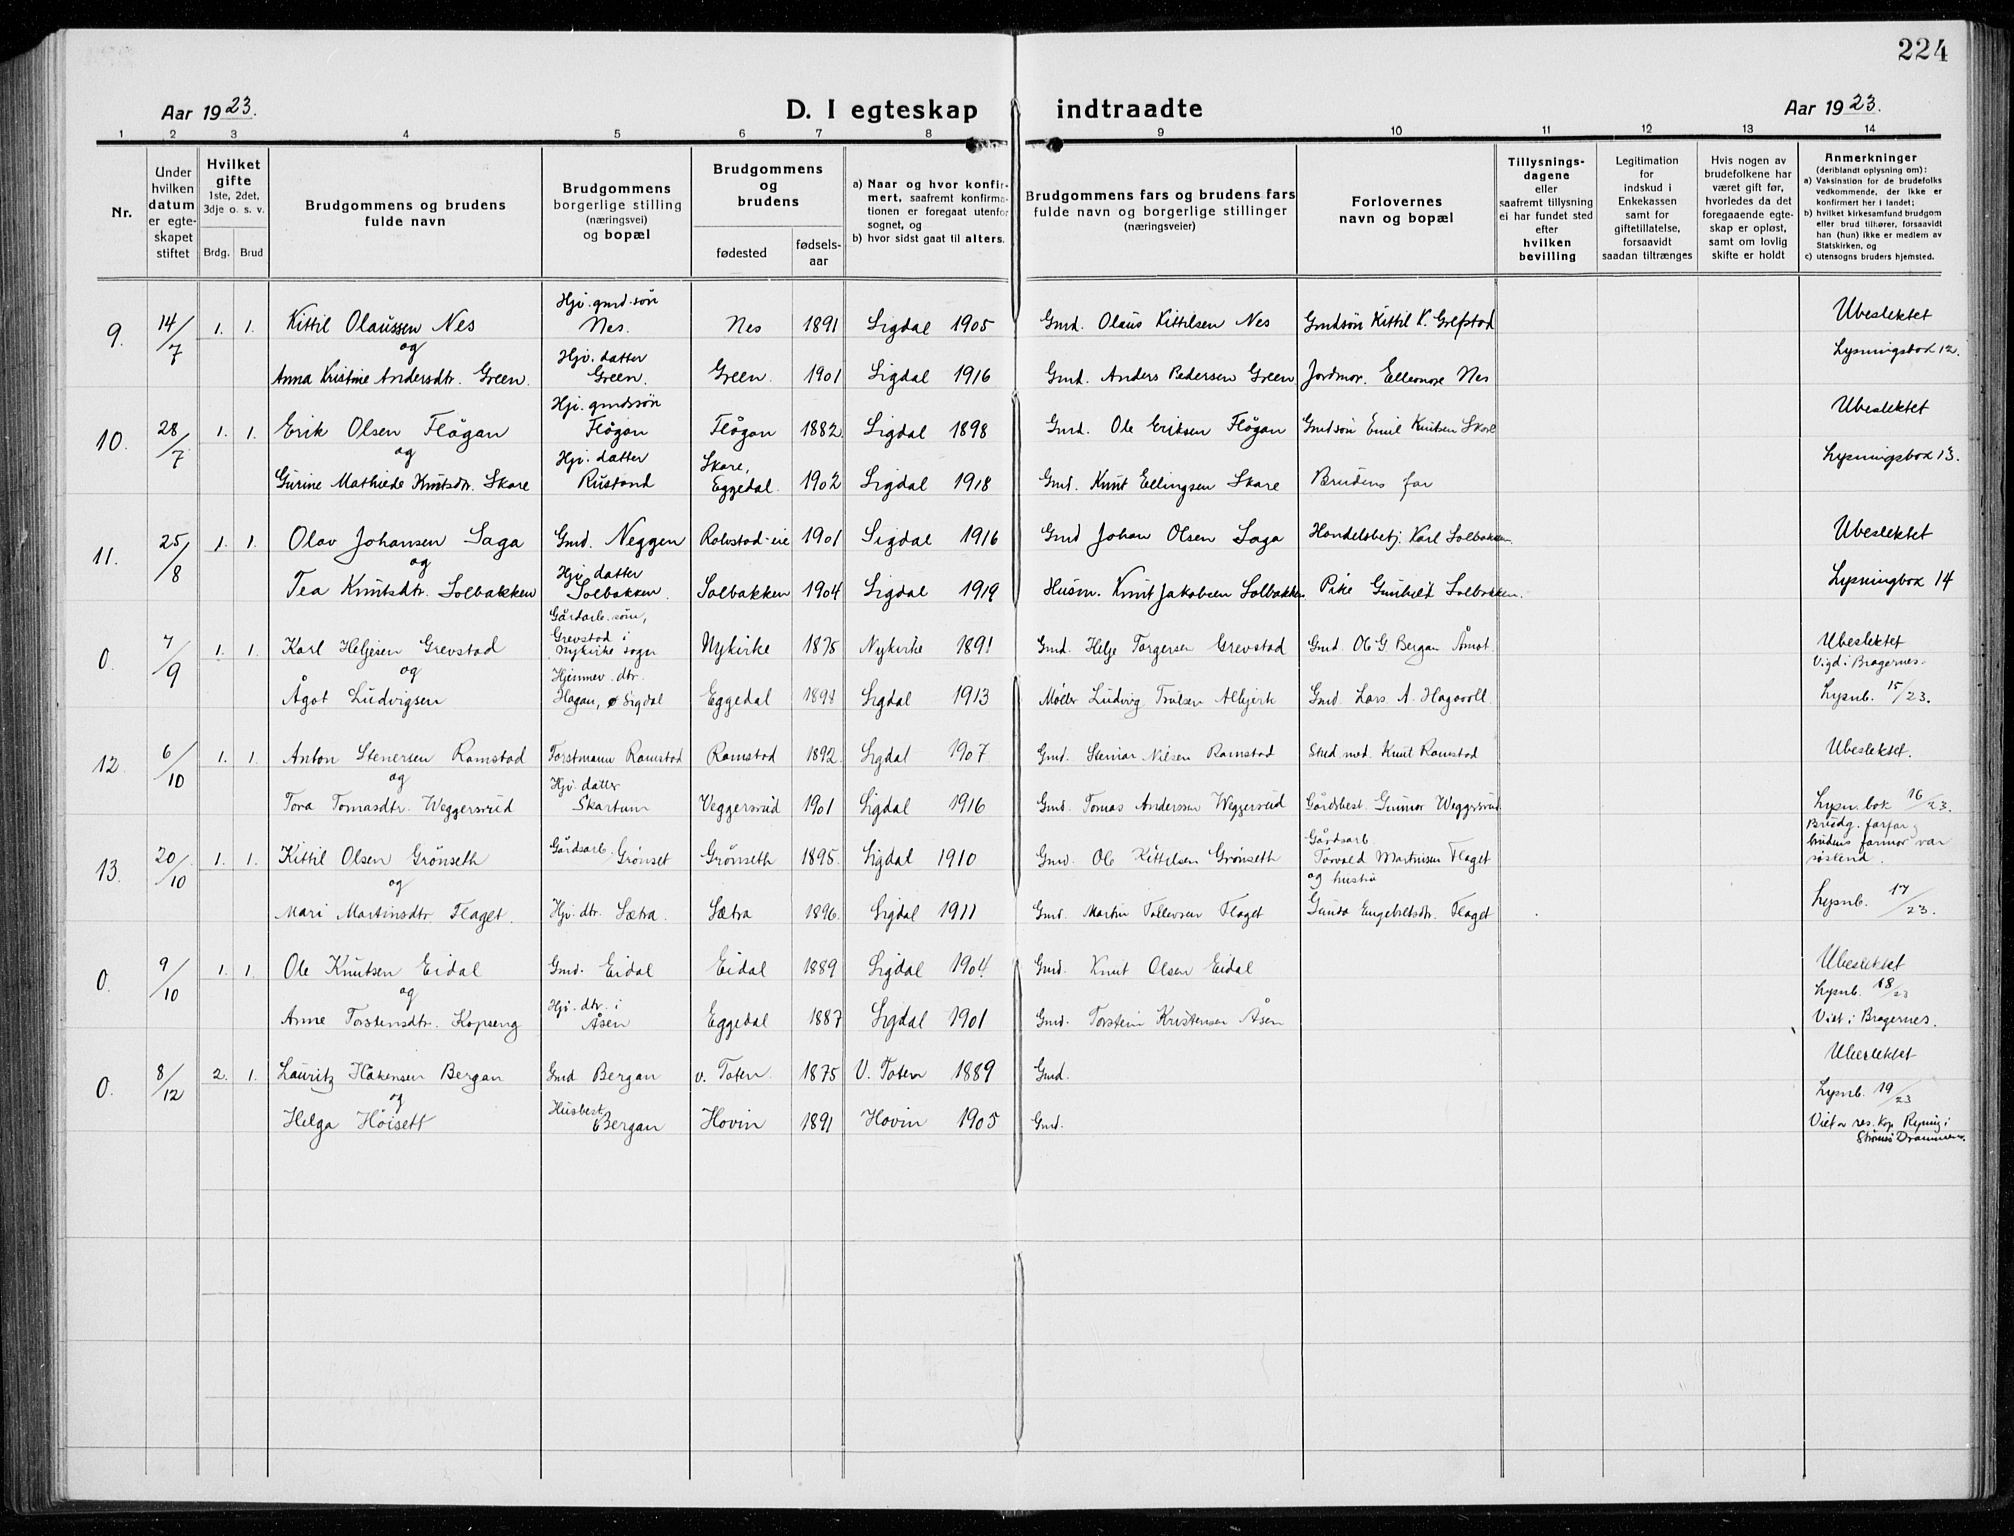 224
Aar 1923.
D. I egteskap indtraadte
Aar 1923.
1 2 3 4 5 6 7 8 9 10 11 12 13 14
Nr.
Under hvilken datum er egteskapet stiftet
Hvilket gifte 1ste, 2det, 3dje o. s. v.
Brdg. Brud
Brudgommens og brudens fulde navn
Brudgommens borgerlige stilling (næringsvei) og bopæl
Brudgommens og brudens
fødested
fødselsaar
a) Naar og hvor konfirmert, saafremt konfirmationen er foregaat utenfor sognet, og
b) hvor sidst gaat til alters.
Brudgommens fars og brudens fars fulde navn og borgerlige stillinger (næringsveier)
Forlovernes navn og bopæl
Tillysningsdagene eller saafremt tillysning ei har fundet sted efter hvilken bevilling
Legitimation for indskud i Enkekassen samt for giftetillatelse, forsaavidt saadan tiltrænges
Hvis nogen av brudefolkene har været gift før, hvorledes da det foregaaende egteskap er opløst, samt om lovlig skifte er holdt
Anmerkninger (deriblandt oplysning om):
a) Vaksination for de brudefolks vedkommende, der ikke er konfirmert her i landet;
b) hvilket kirkesamfund brudgom eller brud tilhører, forsaavidt han (hun) ikke er medlem av Statskirken, og
c) utensogns bruders hjemsted.
9. 14/7 1. 1. Kittil Olaussen Nes Hjv. gmd. søn Nes. Nes 1891 Sigdal 1905 Gmd. Olaus Kittilsen Nes Gmdsøn Kittil K. Grefstad Ubeslektet
og
Anna Kristine Andersdtr. Green. Hjv. datter Green. Green. 1901 Sigdal 1916 Gmd. Anders Pedersen Green Jordmor. Elleonore Nes Lysningsbok 12.
10. 28/7 1. 1. Erik Olsen Flågan Hjv. gmdssøn Flågan Flågan 1882 Sigdal 1898 Gmd. Ole Eriksen Flågan Gmdsøn Emil Knutsen Skare Ubeslektet
og
Gurine Mathiede Knutsdtr. Skare Hjv. datter Rustand Skare, Eggedal. 1902 Sigdal 1918 Gmd. Knut Ellingsen Skare Brudens far Lysningsbok 13.
11. 25/8 1. 1. Olav Johansen Saga Gmd. Neggen Rolvstad-eie 1901 Sigdal 1916 Gmd Johan Olsen Saga Handelsbetj. Karl Solbakken. Ubeslektet
og
Tea Knutsdtr. Solbakken Hjv. datter Solbakken. Solbakken 1904 Sigdal 1919 Husm. Knut Jakobsen Solbakken Pike Gunhild Solbakken. Lysningbok 14
0. 7/9 1. 1. Karl Heljesen Grevstad Gårdarb. søn, Grevstad i Nykirke sogn Nykirke 1875 Nykirke 1891 Gmd. Helje Torgersen Grevstad Gmd. Ole G Bergan Åmot Ubeslektet
Vigd i Bragernes.
og
Ågot Ludvigsen Hjemmev. dtr. Hagan, Sigdal Eggedal Sigdal 1913 Møller Ludvig Trulsen Albjerk Gmd. Lars A. Hagavoll. Lysnb. 15/23.
12. 6/10 1. 1. Anton Stenersen Ramstad Forstmann Ramstad Ramstad 1892 Sigdal 1907 Gmd. Stenar Nilsen Ramstad Stud. med. Knut Ramstad Ubeslektet.
og
Tora Tomasdtr. Weggersrud Hjv. datter Skartum Veggersrud 1901 Sigdal 1916 Gmd. Tomas Andersen Weggersrud Gårdsbest. Gunnar Weggersrud Lysn. bok 16/23.
13. 20/10 1. 1. Kittil Olsen Grønseth Gårdsarb. Grønset Grønseth 1895. Sigdal 1910 Gmd. Ole Kittilsen Grønseth Gårdsarb. Torvald Martinisen Flaget og hustru Brudg. farfar og brudens farmor var søskend.
og
Mari Martinsdtr. Flaget. Hjv. dtr. Sætra. Sætra 1896. Sigdal 1911 Gmd. Martin Tollevsen Flaget Gunda Engebretsdtr. Flaget Lysnb. 17/23.
0. 9/10 1. 1. Ole Knutsen Eidal Gmd. Eidal Eidal 1889 Sigdal 1904. Gmd. Knut Olsen Eidal Ubeslektet
Lysnb. 18/23
og
Anne Torstensdtr. Kopseng Hjv. dtr. i Åsen Eggedal 1887 Sigdal 1901 Gmd. Torstein Kristensen Åsen Viet i Bragernes.
0. 8/12 2. 1. Lauritz Håkensen Bergan Gmd Bergan v. Toten. 1875 V. Toten 1889 Gmd. Ubeslektet
og
Helga Høisett Husbest. Bergan Hovin 1891 Hovin 1905 Gmd. Lysnb. 19/23
Viet av res. kap Ryning i Strømsø Drammen.